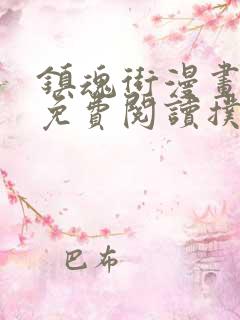 鎮魂街漫畫
免費閱讀撲
巴布